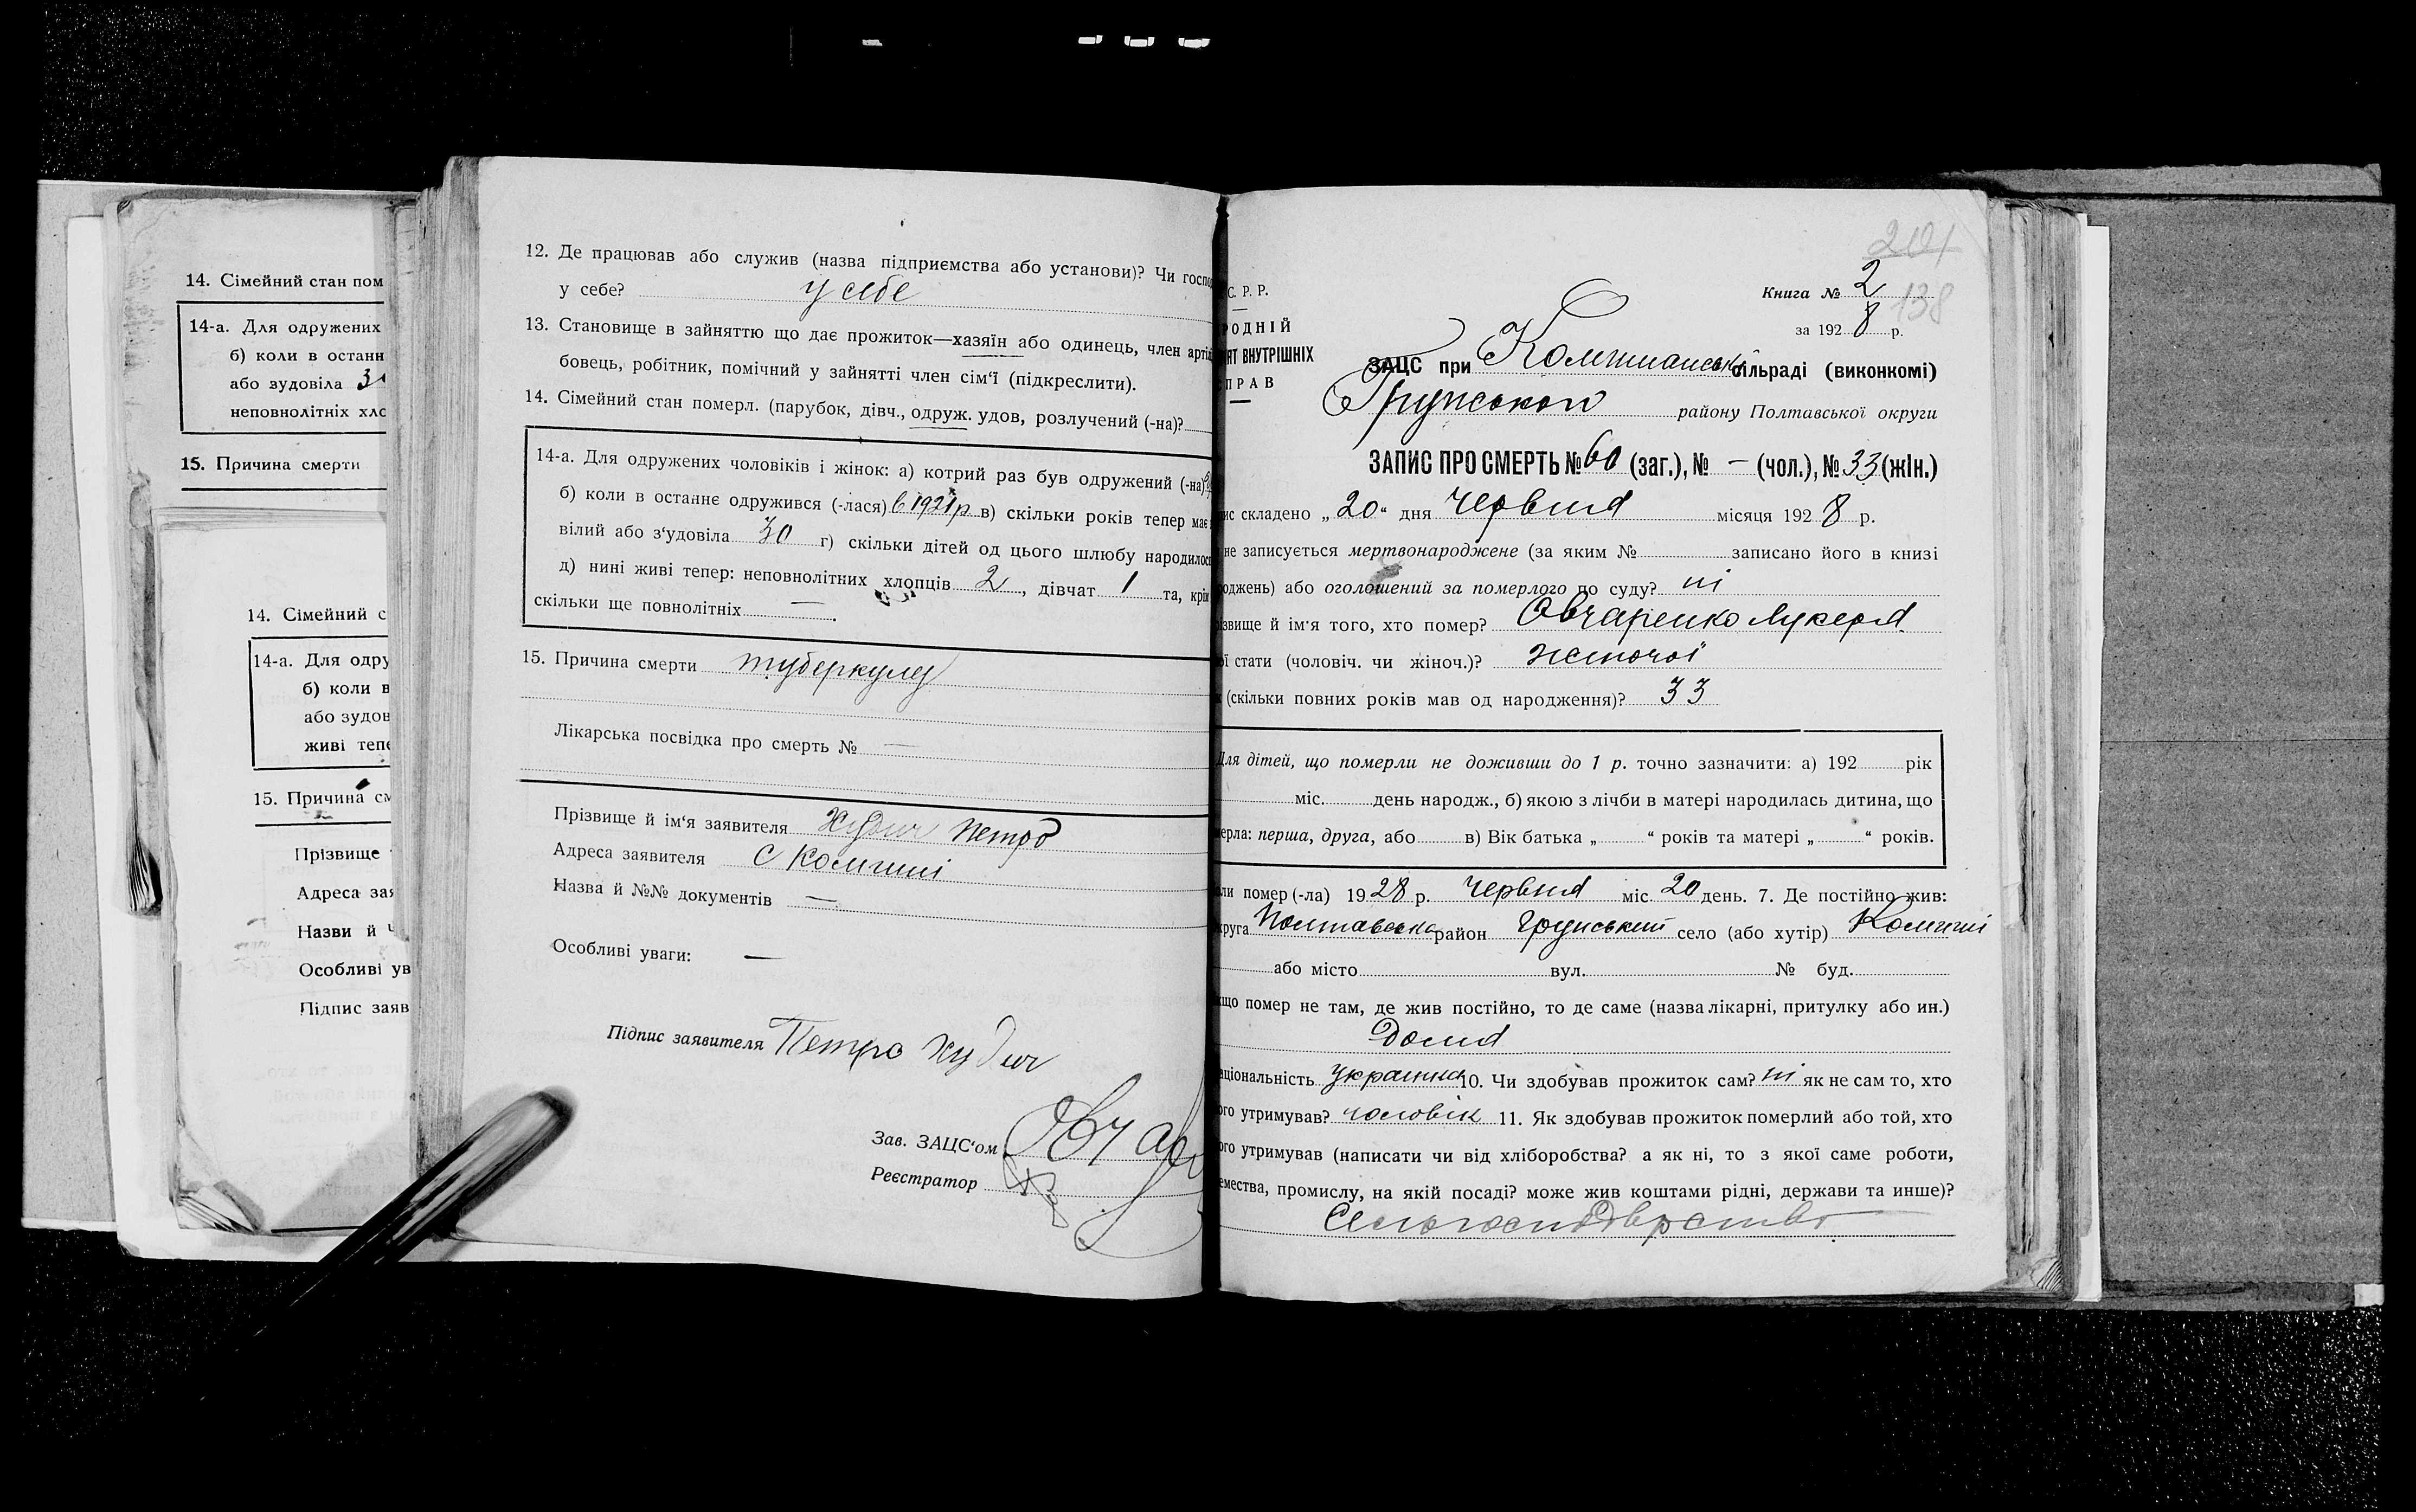 14. Сімейний стан пом
14-а. Для одружених
б) коли в останн
або зудовіла 3
неповнолітніх хло
15. Причина смерти
14. Сімейний с
14-а. Для одру
б) коли в
або зудов
живі тепе
15. Причина см
Прізвище
Адреса зая
Назви й
Особливі ув
Підпис заяв
12. Де працював або служив (назва підприємства або установи)? Чи госпо
у себе? у себе
13. Становище в зайняттю що дає прожиток—хазяїн або одинець, член арті
бовець, робітник, помічний у зайнятті член сім'ї (підкреслити).
14. Сімейний стан померл. (парубок, дівч., одруж. удов, розлучений (-на)?
14-а. Для одружених чоловіків і жінок: а) котрий раз був одружений (-на)
б) коли в останнє одружився (-лася) в 1921 р в) скільки років тепер має
вілий або з'удовіла 30 г) скільки дітей од цього шлюбу народилос
д) нині живі тепер: неповнолітних хлопців 2, дівчат 1 та, крім
скільки ще повнолітніх —.
15. Причина смерти туберкулу
Лікарська посвідка про смерть № —
Прізвище й ім'я заявителя Худич Петро
Адреса заявителя с Комиші
Назва й №№ документів —
Особливі уваги: —
Підпис заявителя Петро Худич
Зав. ЗАЦС'ом Овчар
Реєстратор
201
С. Р. Р.
Книга № 2
138
РОДНІЙ
за 192 8 р.
ЯТ ВНУТРІШНІХ
ПРАВ
ЗАЦС при Комишанській сільраді (виконкомі)
Грунського району Полтавської округи
ЗАПИС ПРО СМЕРТЬ № 60 (заг.), № — (чол.), № 33 (жін.)
ис складено „20“ дня Червня місяця 192 8 р.
не записується мертвонароджене (за яким № записано його в книзі
роджень) або оголошений за померлого по суду? ні
ізвище й ім'я того, хто помер? Овчаренко Лукеря
ої стати (чоловіч. чи жіноч.)? жіночої
(скільки повних років мав од народження)? 33
Для дітей, що померли не доживши до 1 р. точно зазначити: а) 192 рік
міс. день народж., б) якою з лічби в матері народилась дитина, що
ерла: перша, друга, або в) Вік батька „ “ років та матері „ “ років.
ли помер (-ла) 1928 р. Червня міс. 20 день. 7. Де постійно жив:
круга Полтавська район Грунський село (або хутір) Комиші
або місто вул. № буд.
кщо помер не там, де жив постійно, то де саме (назва лікарні, притулку або ин.)
Дома
аціональність украинка 10. Чи здобував прожиток сам? ні як не сам то, хто
ого утримував? чоловік 11. Як здобував прожиток померлий або той, хто
ого утримував (написати чи від хліборобства? а як ні, то з якої саме роботи,
емества, промислу, на якій посаді? може жив коштами рідні, держави та инше)?